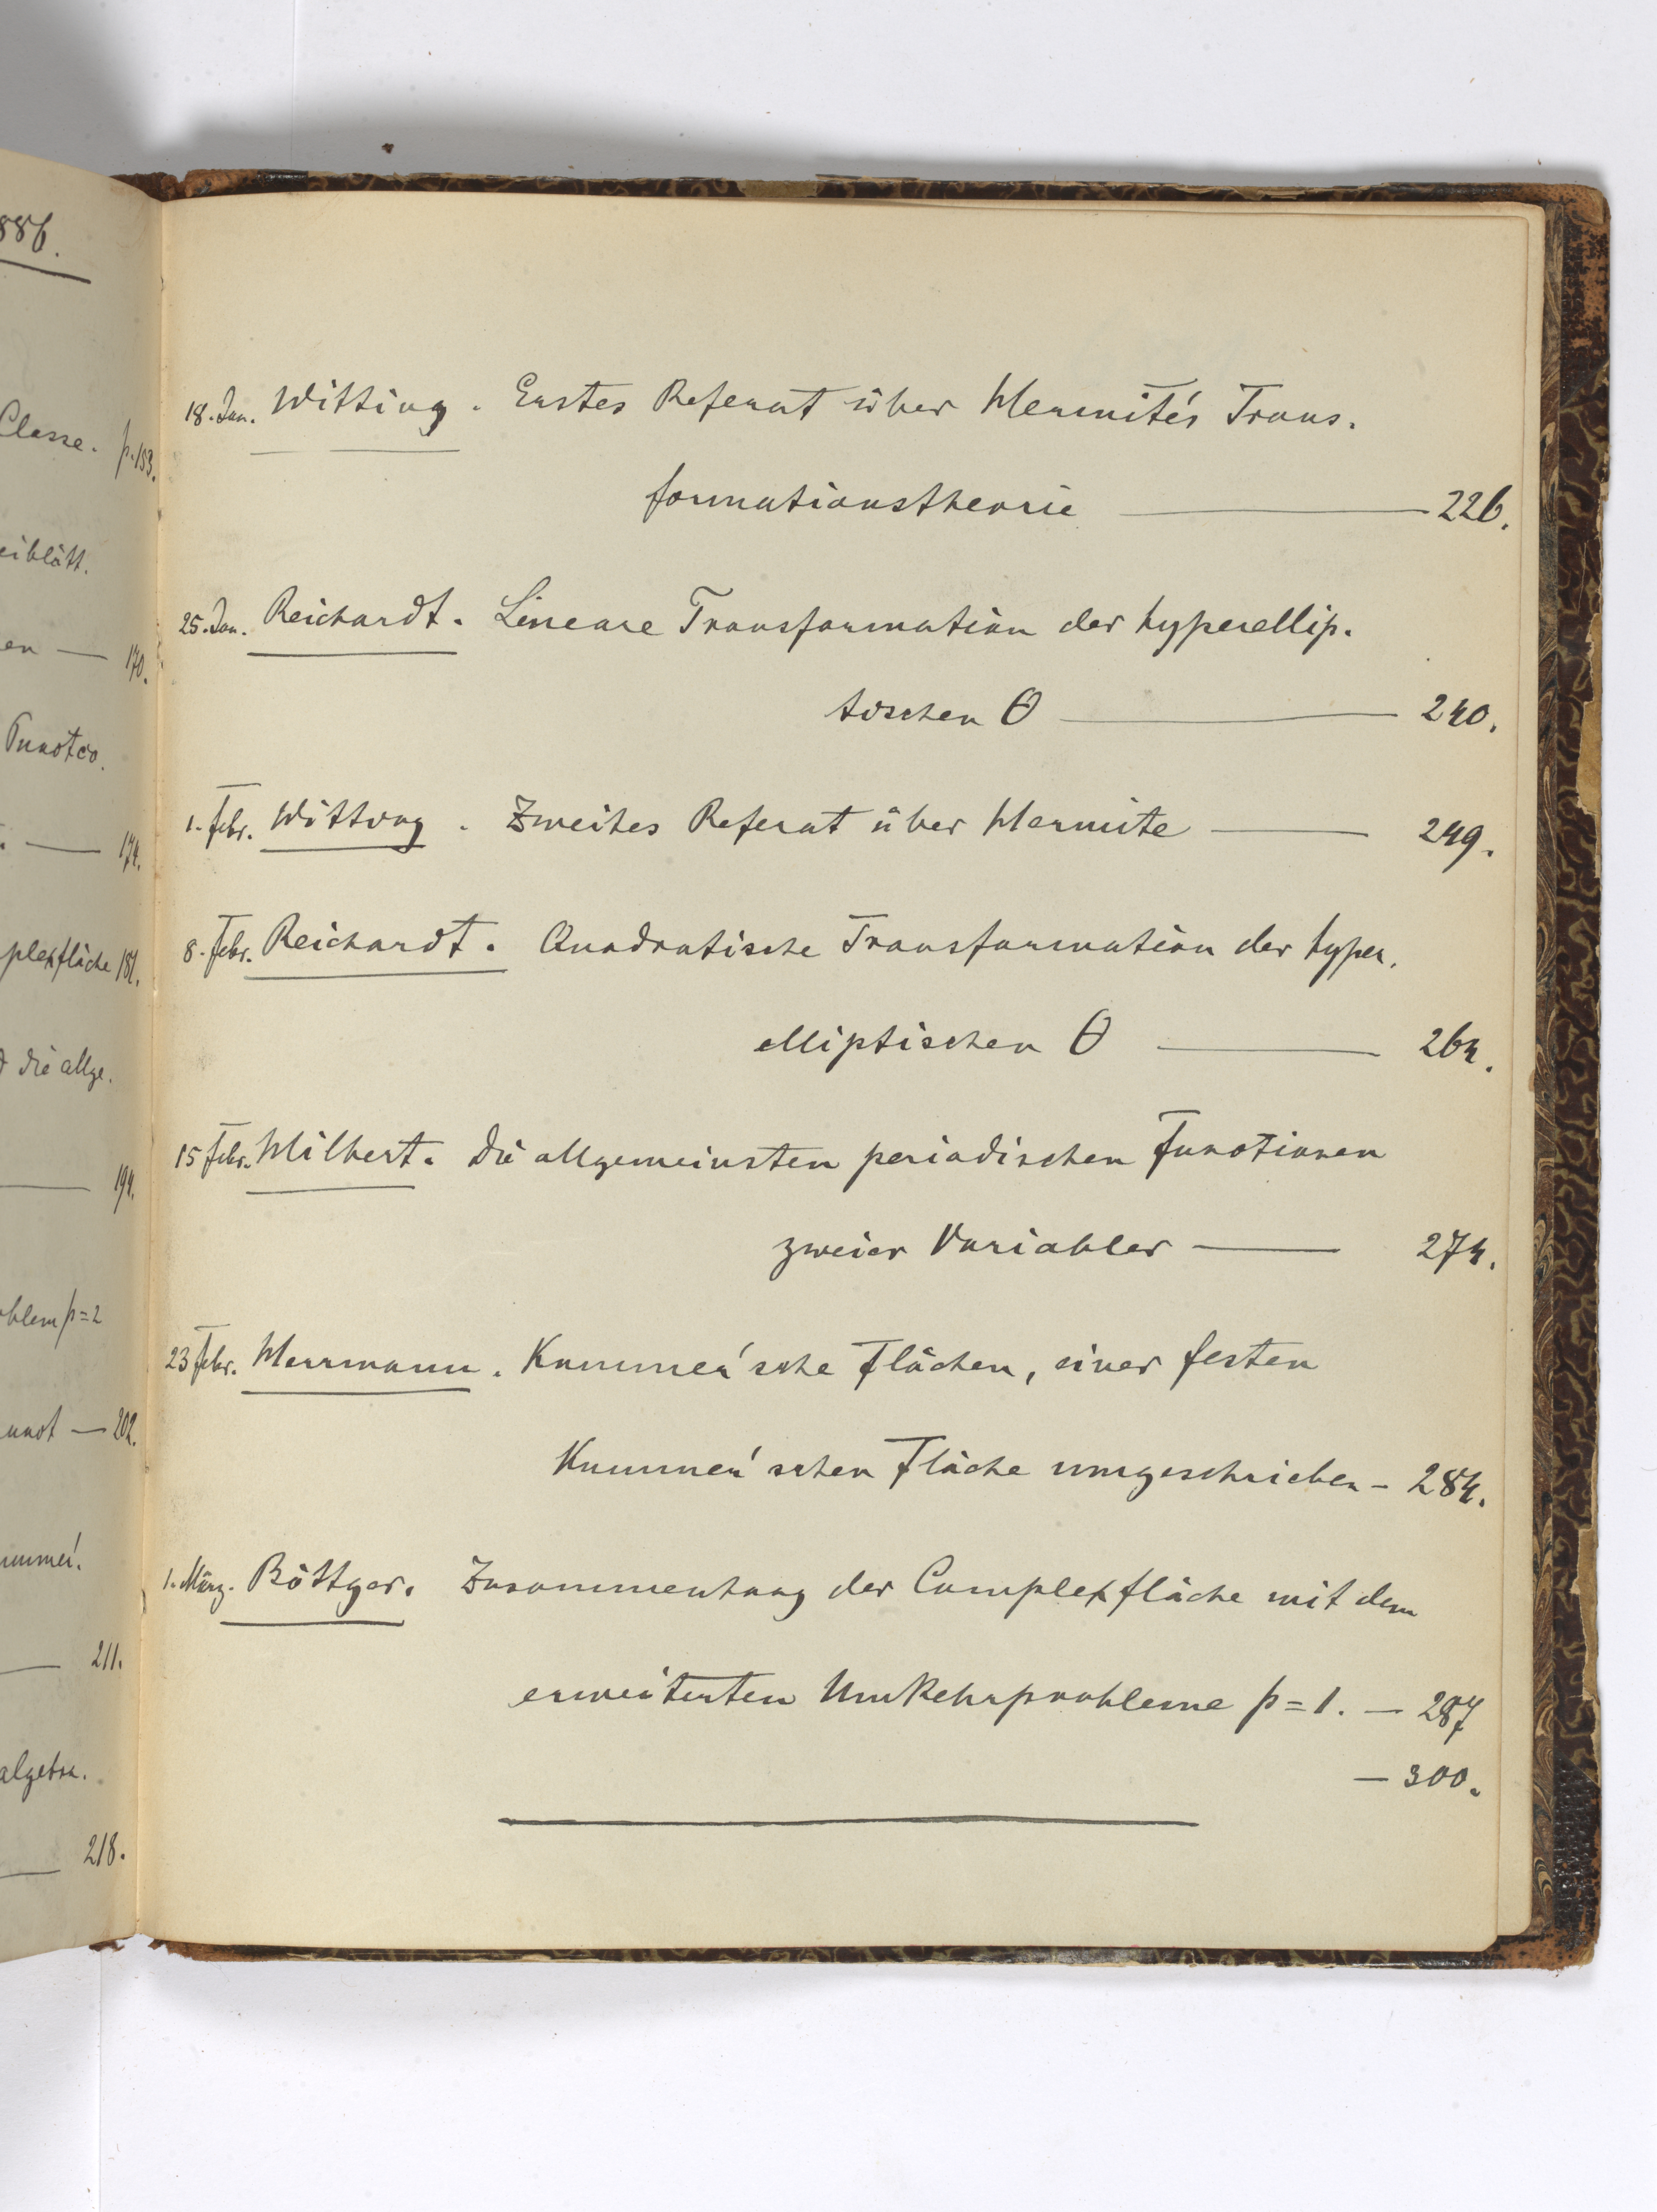 886.
Classe. p.153.
eiblätt.
en — 170.
Functio.
— 174.
plexfläche 181.
d die allge.
— 194.
oblem p=2
unct — 202.
ummer'.
— 211.
algebr.
— 218.
18. Jan. Witting. Erstes Referat über Hermite's Trans-
formationstheorie — 226.
25. Jan. Reichardt. Lineare Transformation der hyperellip-
tischen Θ — 240.
1. Febr. Witting. Zweites Referat über Hermite — 249.
8. Febr. Reichardt. Quadratische Transformation der hyper-
elliptischen Θ — 264.
15 Febr. Hilbert. Die allgemeinsten periodischen Functionen
zweier Variabler — 274.
23 Febr. Herrmann. Kummer'sche Flächen, einer festen
Kummer'schen Fläche umgeschrieben — 284.
1. März. Böttger. Zusammenhang der Complexfläche mit dem
erweiterten Umkehrprobleme p=1. — 287
— 300.